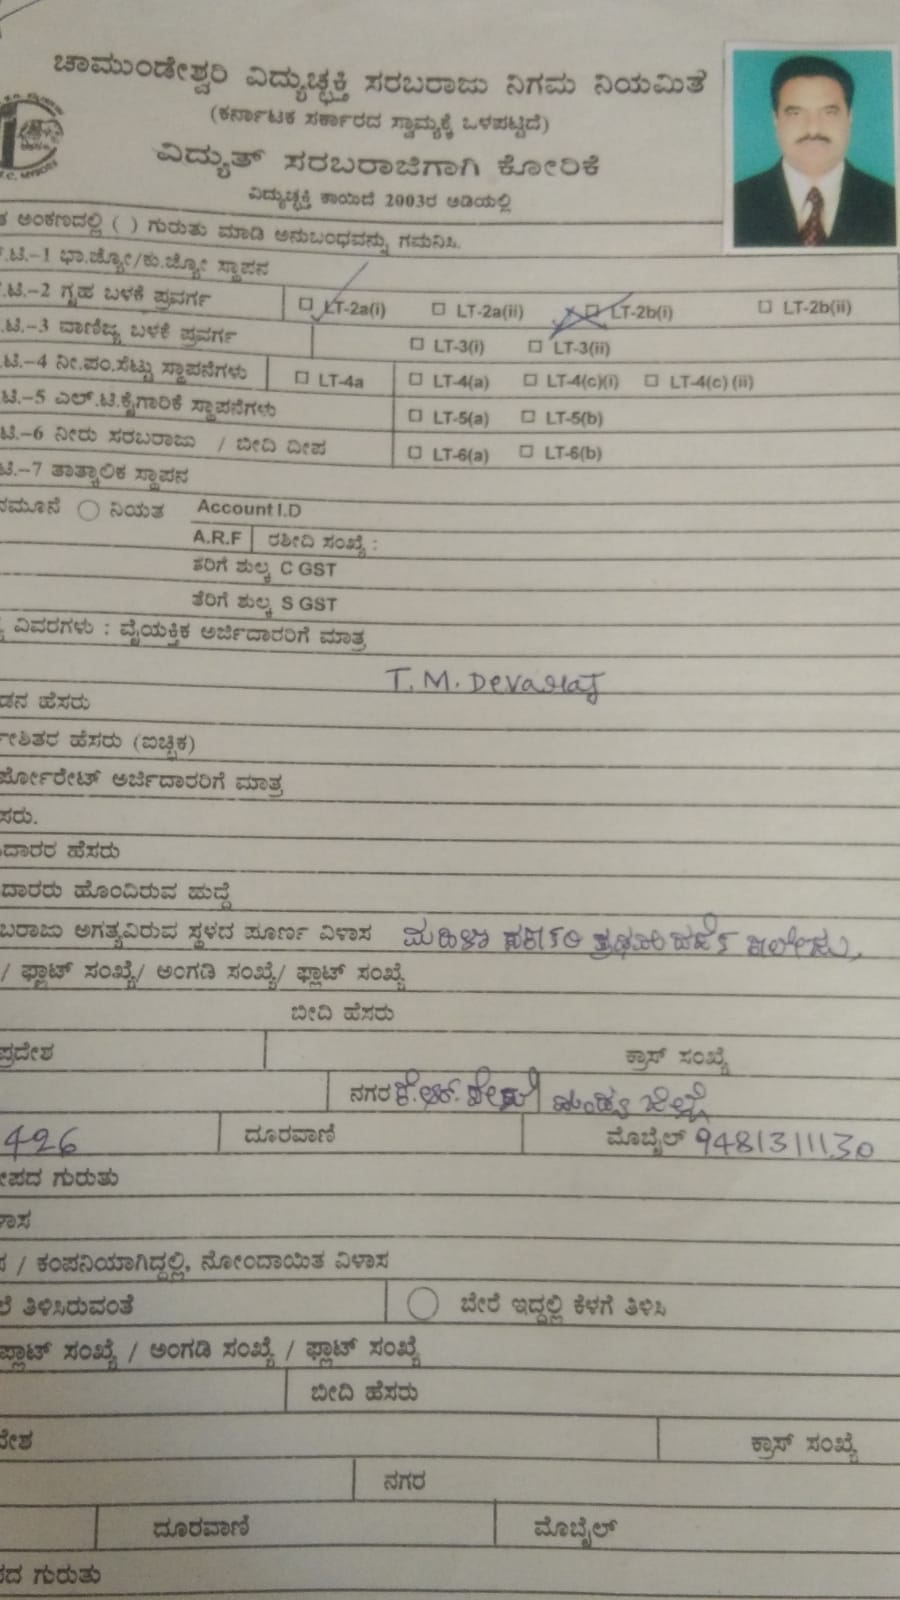 ಚಾಮುಂಡೇಶ್ವರಿ ವಿದ್ಯುಚ್ಛಕ್ತಿ ಸರಬರಾಜು ನಿಗಮ ನಿಯಮಿತೆ
(ಕರ್ನಾಟಕ ಸರ್ಕಾರದ ಸ್ವಾಮ್ಯಕ್ಕೆ ಒಳಪಟ್ಟಿದೆ)
ವಿದ್ಯುತ್ ಸರಬರಾಜಿಗಾಗಿ ಕೋರಿಕೆ
ವಿದ್ಯುಚ್ಛಕ್ತಿ ಕಾಯಿದೆ 2003ರ ಅಡಿಯಲ್ಲಿ
ಅಂಕಣದಲ್ಲಿ ( ) ಗುರುತು ಮಾಡಿ ಅನುಬಂಧವನ್ನು ಗಮನಿಸಿ.
.ಟಿ.–1 ಭಾ.ಜ್ಯೋ/ಕು.ಜ್ಯೋ ಸ್ಥಾಪನ
.ಟಿ.–2 ಗೃಹ ಬಳಕೆ ಪ್ರವರ್ಗ LT-2a(i) LT-2a(ii) LT-2b(i) LT-2b(ii)
.ಟಿ.–3 ವಾಣಿಜ್ಯ ಬಳಕೆ ಪ್ರವರ್ಗ LT-3(i) LT-3(ii)
.ಟಿ.–4 ನೀ.ಪಂ.ಸೆಟ್ಟು ಸ್ಥಾಪನೆಗಳು LT-4a LT-4(a) LT-4(c)(i) LT-4(c) (ii)
.ಟಿ.–5 ಎಲ್.ಟಿ.ಕೈಗಾರಿಕೆ ಸ್ಥಾಪನೆಗಳು LT-5(a) LT-5(b)
ಟಿ.–6 ನೀರು ಸರಬರಾಜು / ಬೀದಿ ದೀಪ LT-6(a) LT-6(b)
ಟಿ.–7 ತಾತ್ಕಾಲಿಕ ಸ್ಥಾಪನ
ನಮೂನೆ ನಿಯತ Account I.D
A.R.F ರಶೀದಿ ಸಂಖ್ಯೆ :
ತೆರಿಗೆ ಶುಲ್ಕ C GST
ತೆರಿಗೆ ಶುಲ್ಕ S GST
ವಿವರಗಳು : ವೈಯಕ್ತಿಕ ಅರ್ಜಿದಾರರಿಗೆ ಮಾತ್ರ
T. M. Devaraj
ಡನ ಹೆಸರು
ಶಿತರ ಹೆಸರು (ಐಚ್ಛಿಕ)
ರ್ಪೋರೇಟ್ ಅರ್ಜಿದಾರರಿಗೆ ಮಾತ್ರ
ಸರು.
ದಾರರ ಹೆಸರು
ದಾರರು ಹೊಂದಿರುವ ಹುದ್ದೆ
ಬರಾಜು ಅಗತ್ಯವಿರುವ ಸ್ಥಳದ ಪೂರ್ಣ ವಿಳಾಸ ಮಹಿಳಾ ಸರ್ಕಾರಿ ಪ್ರಥಮ ದರ್ಜೆ ಕಾಲೇಜು,
/ ಫ್ಲಾಟ್ ಸಂಖ್ಯೆ/ ಅಂಗಡಿ ಸಂಖ್ಯೆ/ ಫ್ಲಾಟ್ ಸಂಖ್ಯೆ
ಬೀದಿ ಹೆಸರು
ಪ್ರದೇಶ ಕ್ರಾಸ್ ಸಂಖ್ಯೆ
ನಗರ ಕೆ.ಆರ್.ಪೇಟೆ ಮಂಡ್ಯ ಜಿಲ್ಲೆ
426 ದೂರವಾಣಿ ಮೊಬೈಲ್ 9481311130
ೀಪದ ಗುರುತು
ಳಾಸ
/ ಕಂಪನಿಯಾಗಿದ್ದಲ್ಲಿ, ನೋಂದಾಯಿತ ವಿಳಾಸ
ಲೆ ತಿಳಿಸಿರುವಂತೆ ಬೇರೆ ಇದ್ದಲ್ಲಿ ಕೆಳಗೆ ತಿಳಿಸಿ
ಫ್ಲಾಟ್ ಸಂಖ್ಯೆ / ಅಂಗಡಿ ಸಂಖ್ಯೆ / ಫ್ಲಾಟ್ ಸಂಖ್ಯೆ
ಬೀದಿ ಹೆಸರು
ದೇಶ ಕ್ರಾಸ್ ಸಂಖ್ಯೆ
ನಗರ
ದೂರವಾಣಿ ಮೊಬೈಲ್
ಪದ ಗುರುತು